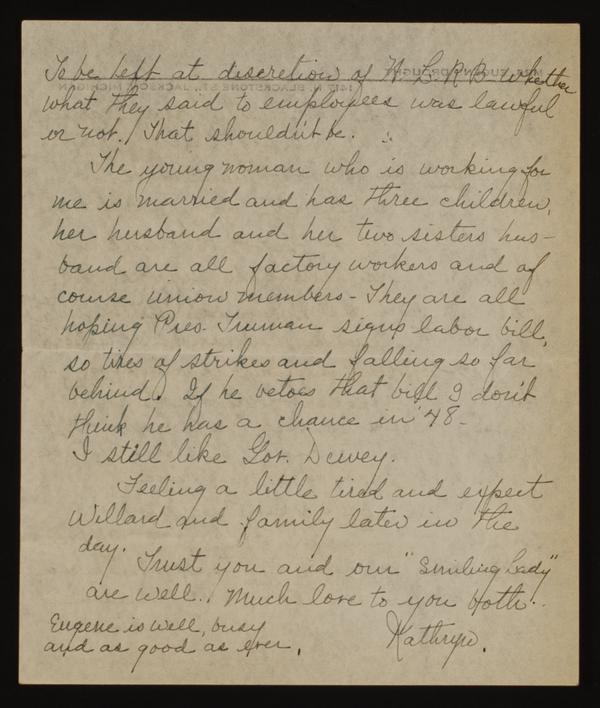 To be left at discretion of N.L.R.B. whether
what they said to employees was lawful
or not. That shouldn't be.
The young woman who is working for
me is married and has three children,
her husband and her two sisters hus-
band are all factory workers and of
course union members - They are all
hoping Pres. Truman signs labor bill,
so tires of strikes and falling so far
behind. If he vetoes that bill I don't
think he has a chance in '48 -
I still like Gov. Dewey.
Feeling a little tired and expect
Willard and family later in the
day.
Trust you and our "Smiling Lady"
are well. Much love to you both.
Eugene is well, busy
and as good as ever.
Kathryn.